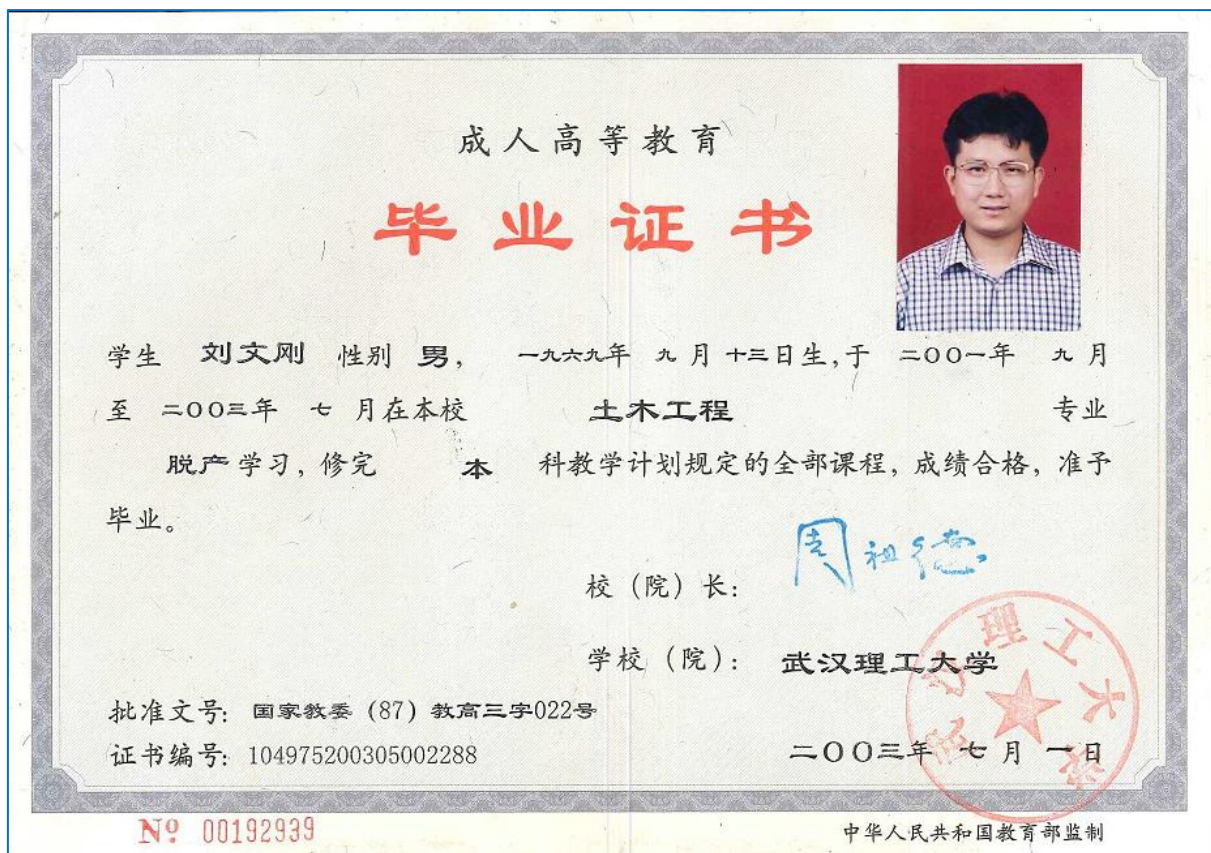 成人高等教育
毕业证书
学生 刘文刚 性别 男, 一九六九年 九月 十三日生,于 二〇〇一年 九月
至 二〇〇三年 七 月在本校 土木工程 专业
脱产学习, 修完 本 科教学计划规定的全部课程, 成绩合格, 准予
毕业。
校（院）长: 周祖德
学校（院）: 武汉理工大学
武汉理工大学
批准文号: 国家教委 (87) 教高三字022号
证书编号: 104975200305002288
二〇〇三年 七月 一日
Nº 00192939
中华人民共和国教育部监制